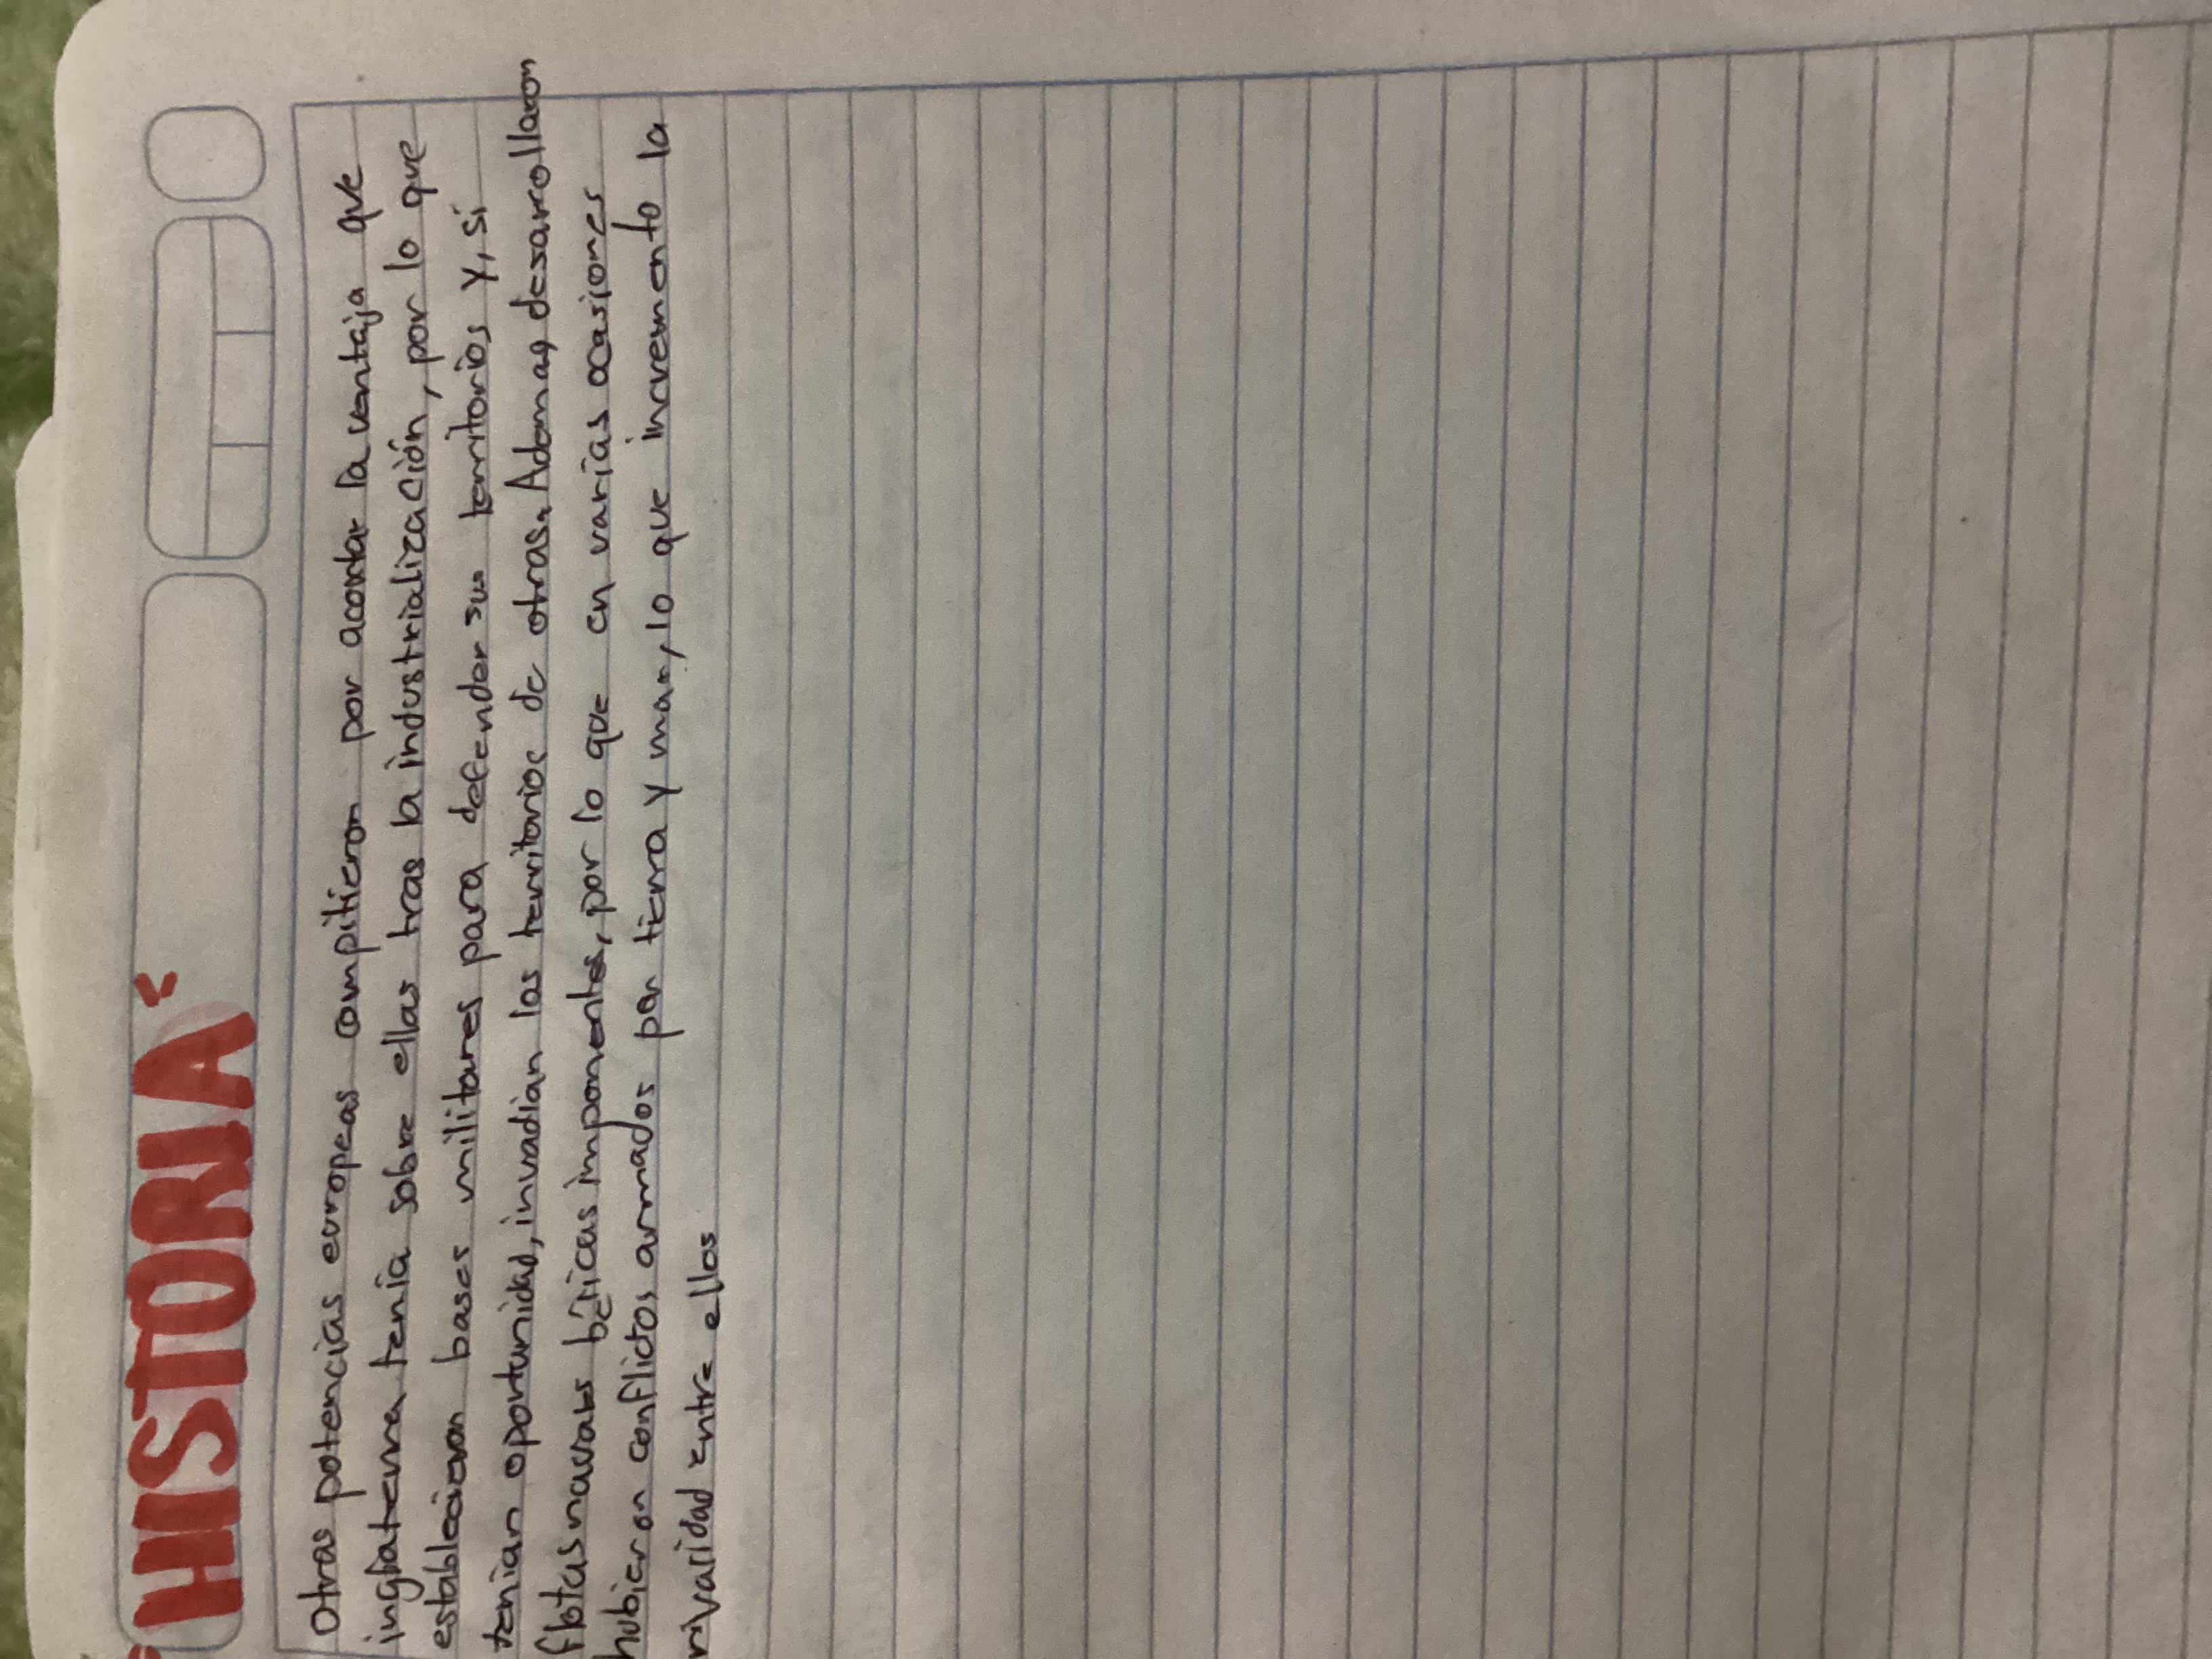 "HISTORIA"
Otras potencias europeas compitieron por acortar la ventaja que
inglaterra tenia sobre ellas tras la industrialización, por lo que
establecieron bases militares para defender sus territorios y, si
tenian oportunidad, invadian los territorios de otras. Ademas, desarollaron
flotas navales bélicas imponentes, por lo que en varias ocasiones
hubieron conflictos armados por tierra y mar, lo que incremento la
rivalidad entre ellos